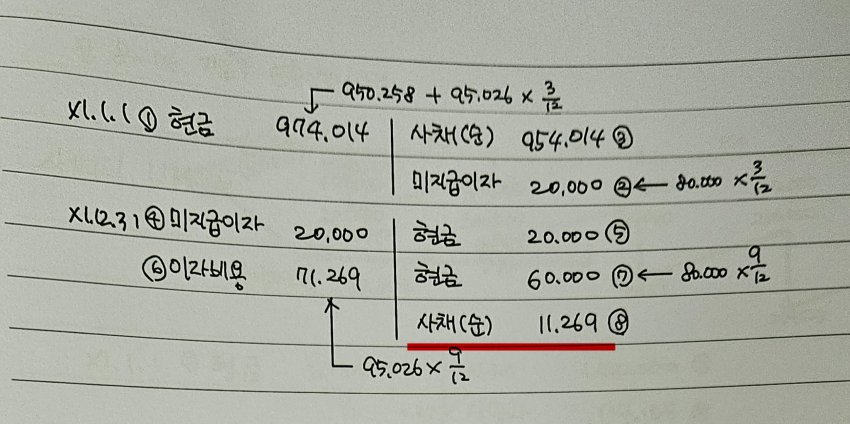 950.258 + 95.026 × 3/12
X1.1.1 ① 현금 974.014 사채(순) 954.014 ③
미지급이자 20,000 ② ← 80.000 × 3/12
X1.12.31 ④ 미지급이자 20,000 현금 20.000 ⑤
⑥ 이자비용 71.269 현금 60.000 ⑦ ← 80.000 × 9/12
사채(순) 11.269 ⑧
95.026 × 9/12